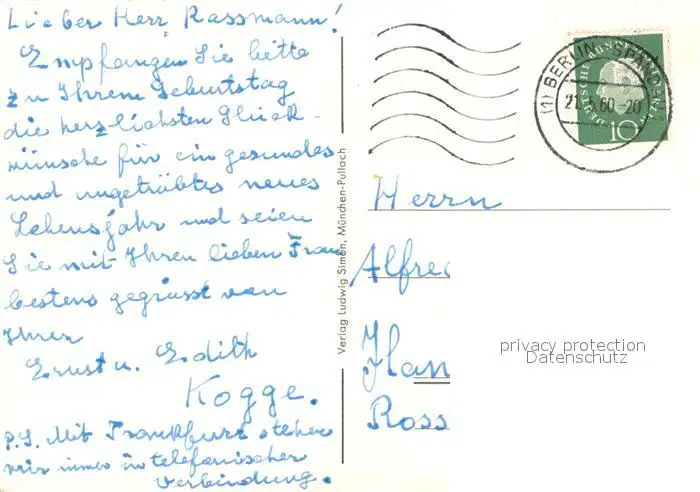 Lieber Herr Rassmann!
Empfangen Sie bitte
zu Ihrem Geburtstag
die herzlichsten Glück-
wünsche für ein gesundes
und ungetrübtes neues
Lebensjahr und seien
Sie mit Ihren lieben Frau
bestens gegrüsst von
Ihren
Ernst u. Edith
Kogge.
P.S. Mit Frankfurt stehen
wir immer in telefonischer
Verbindung.
Verlag Ludwig Simon, München-Pullach
(1) BERLIN-SPANDAU
21. 5.60-20
DEUTSCHE BUNDESPOST
10
Herrn
Alfred
Han
Ross
privacy protection
Datenschutz